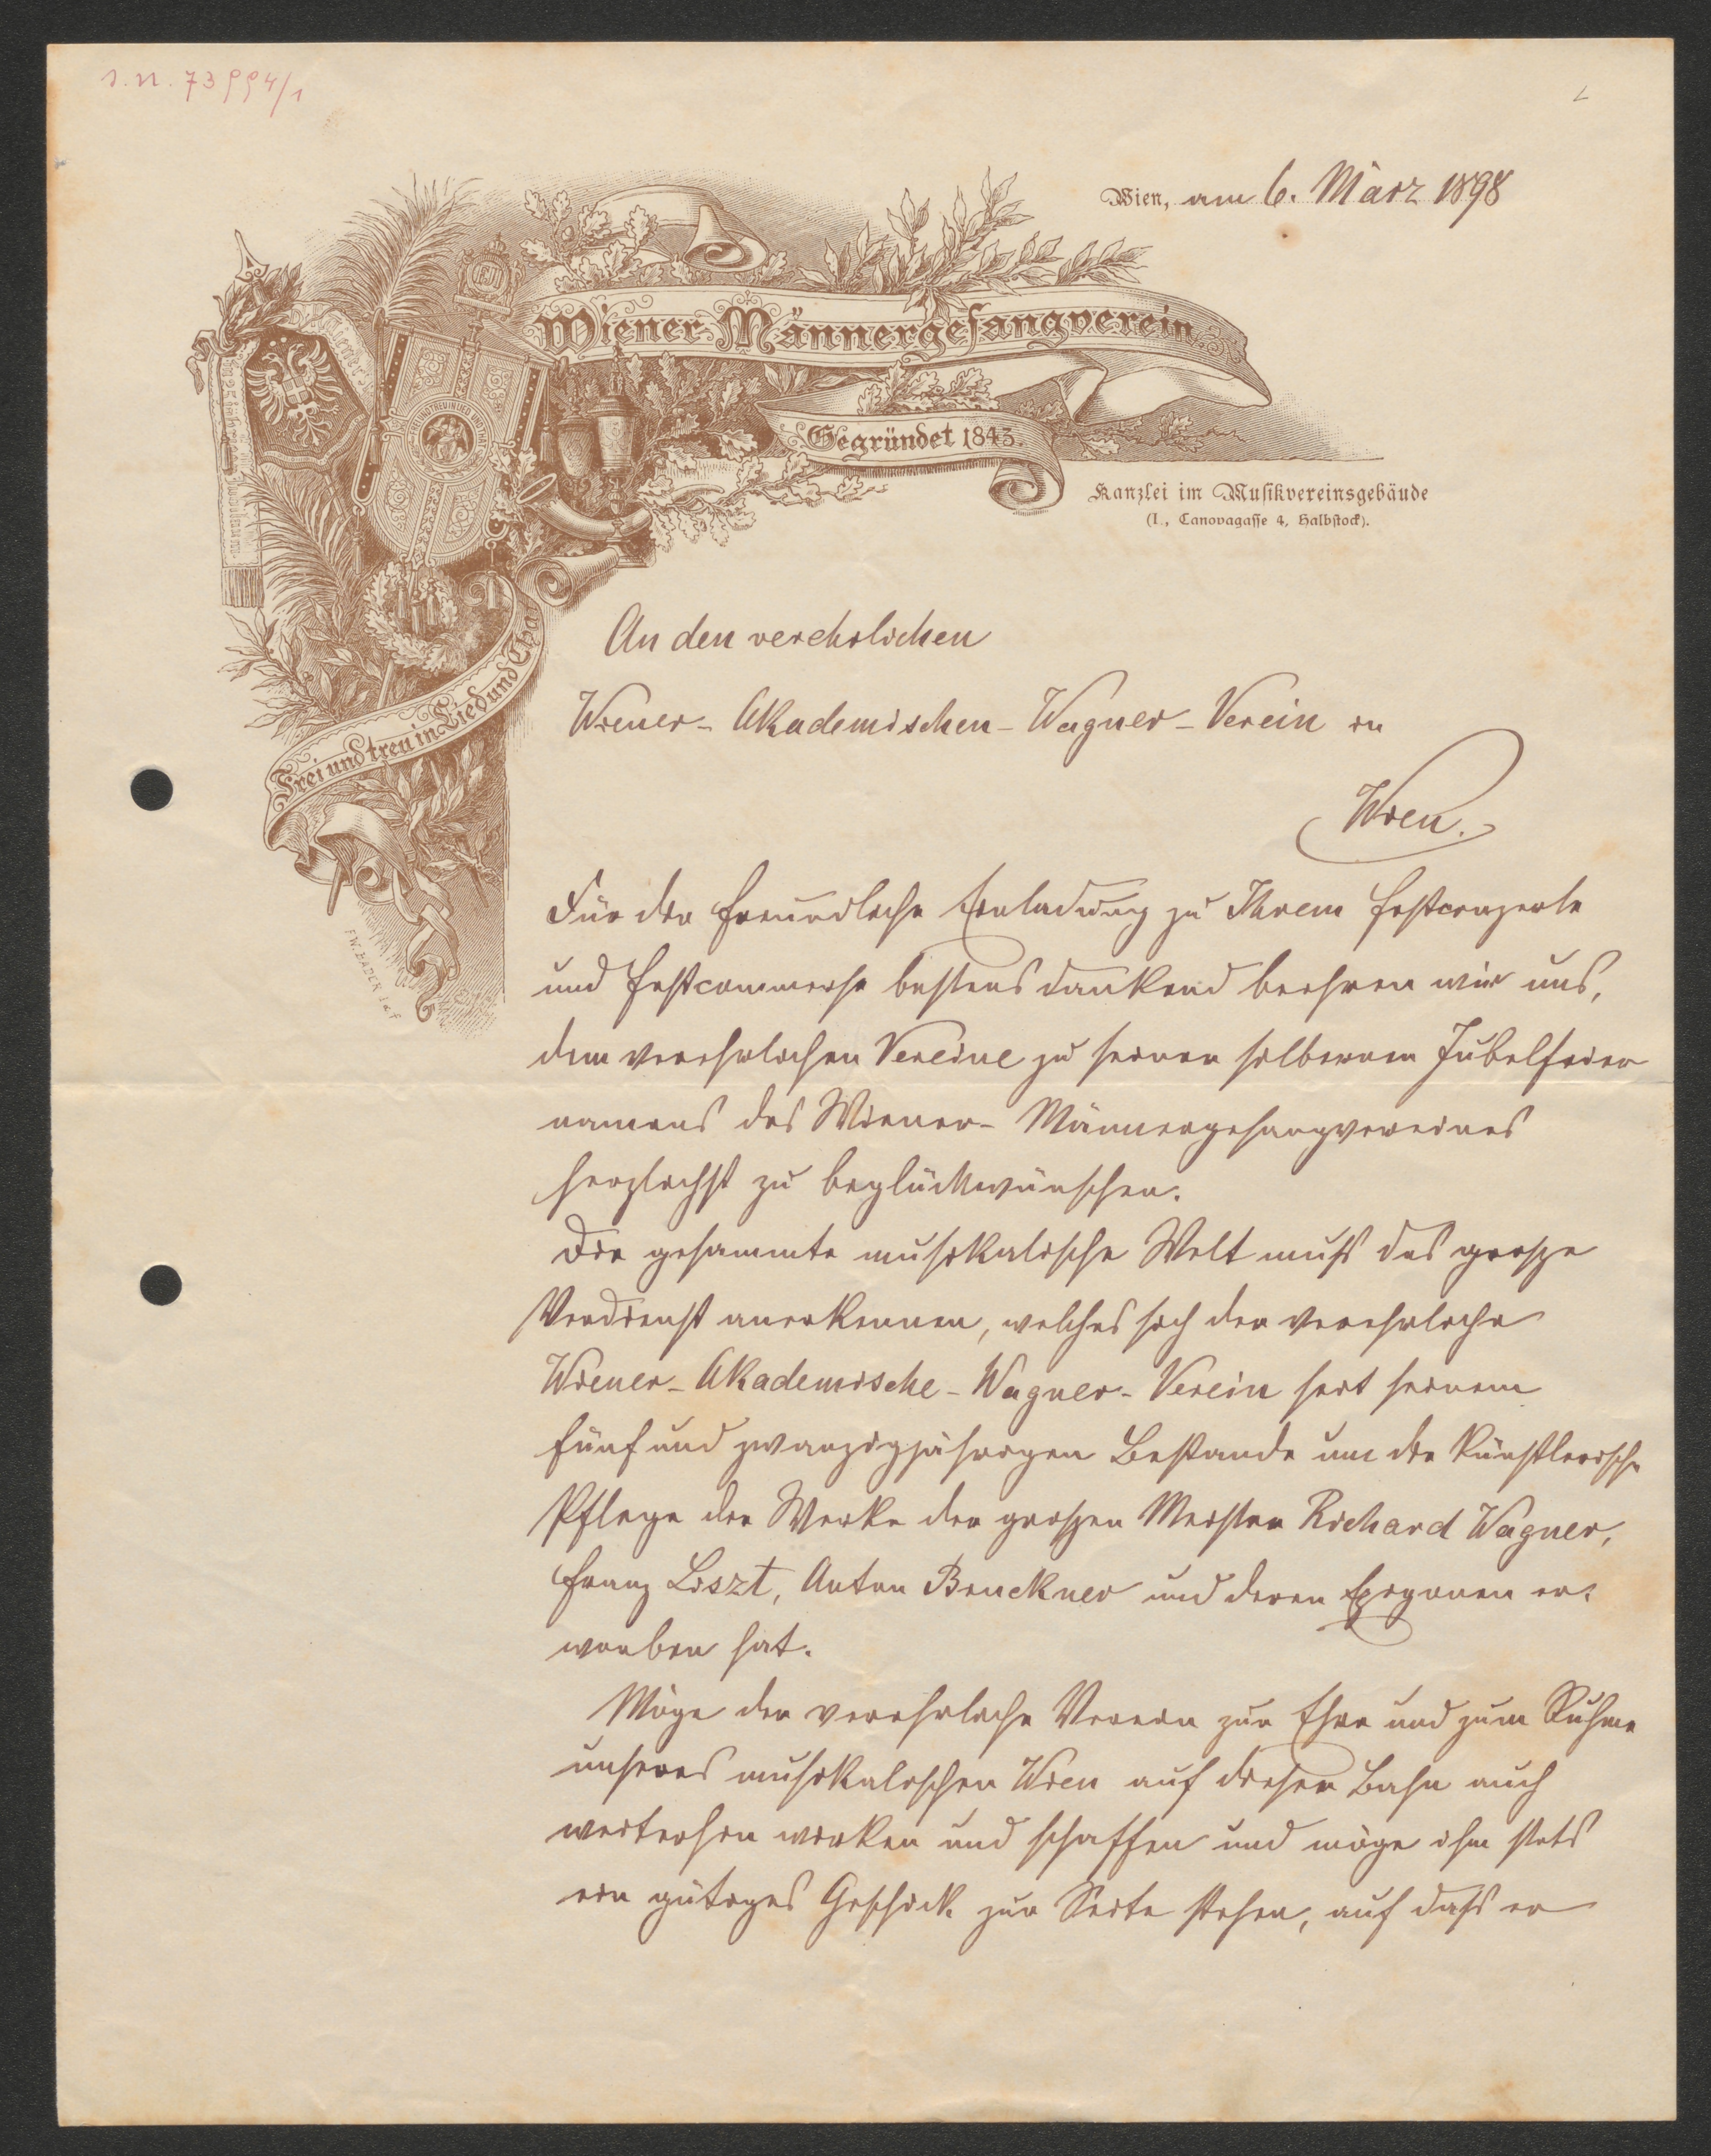 I. N. 73994/1
Wien, am 6. März 1898
Wiener Männergesangverein
Gegründet 1843.
Kanzlei im Musikvereinsgebäude
(I., Canovagasse 4, Halbstock).
FREI UND TREU IN LIED UND THAT
Frei und treu in Lied und Tha
An den verehrlichen
Wiener-Akademischen-Wagner-Verein in
Wien.
Für die freundliche Einladung zu Ihrem Festconzerte
und Festcommerse bestens dankend beehren wir uns,
dem verehrlichen Vereine zu seiner silbernen Jubelfeier
namens des Wiener-Männergesangvereines
herzlichst zu beglückwünschen.
Die gesammte musikalische Welt muß das große
Verdienst anerkennen, welches sich der verehrliche
Wiener-Akademische-Wagner-Verein seit seinem
fünfundzwanzigjährigen Bestande um die künstlerische
Pflege der Werke der großen Meister Richard Wagner,
Franz Liszt, Anton Bruckner und deren Epigonen er-
worben hat.
Möge der verehrliche Verein zur Ehre und zum Ruhme
unseres musikalischen Wien auf dieser Bahn auch
weiterhin wirken und schaffen und möge ihm stets
ein gütiges Geschick zur Seite stehen, auf daß er